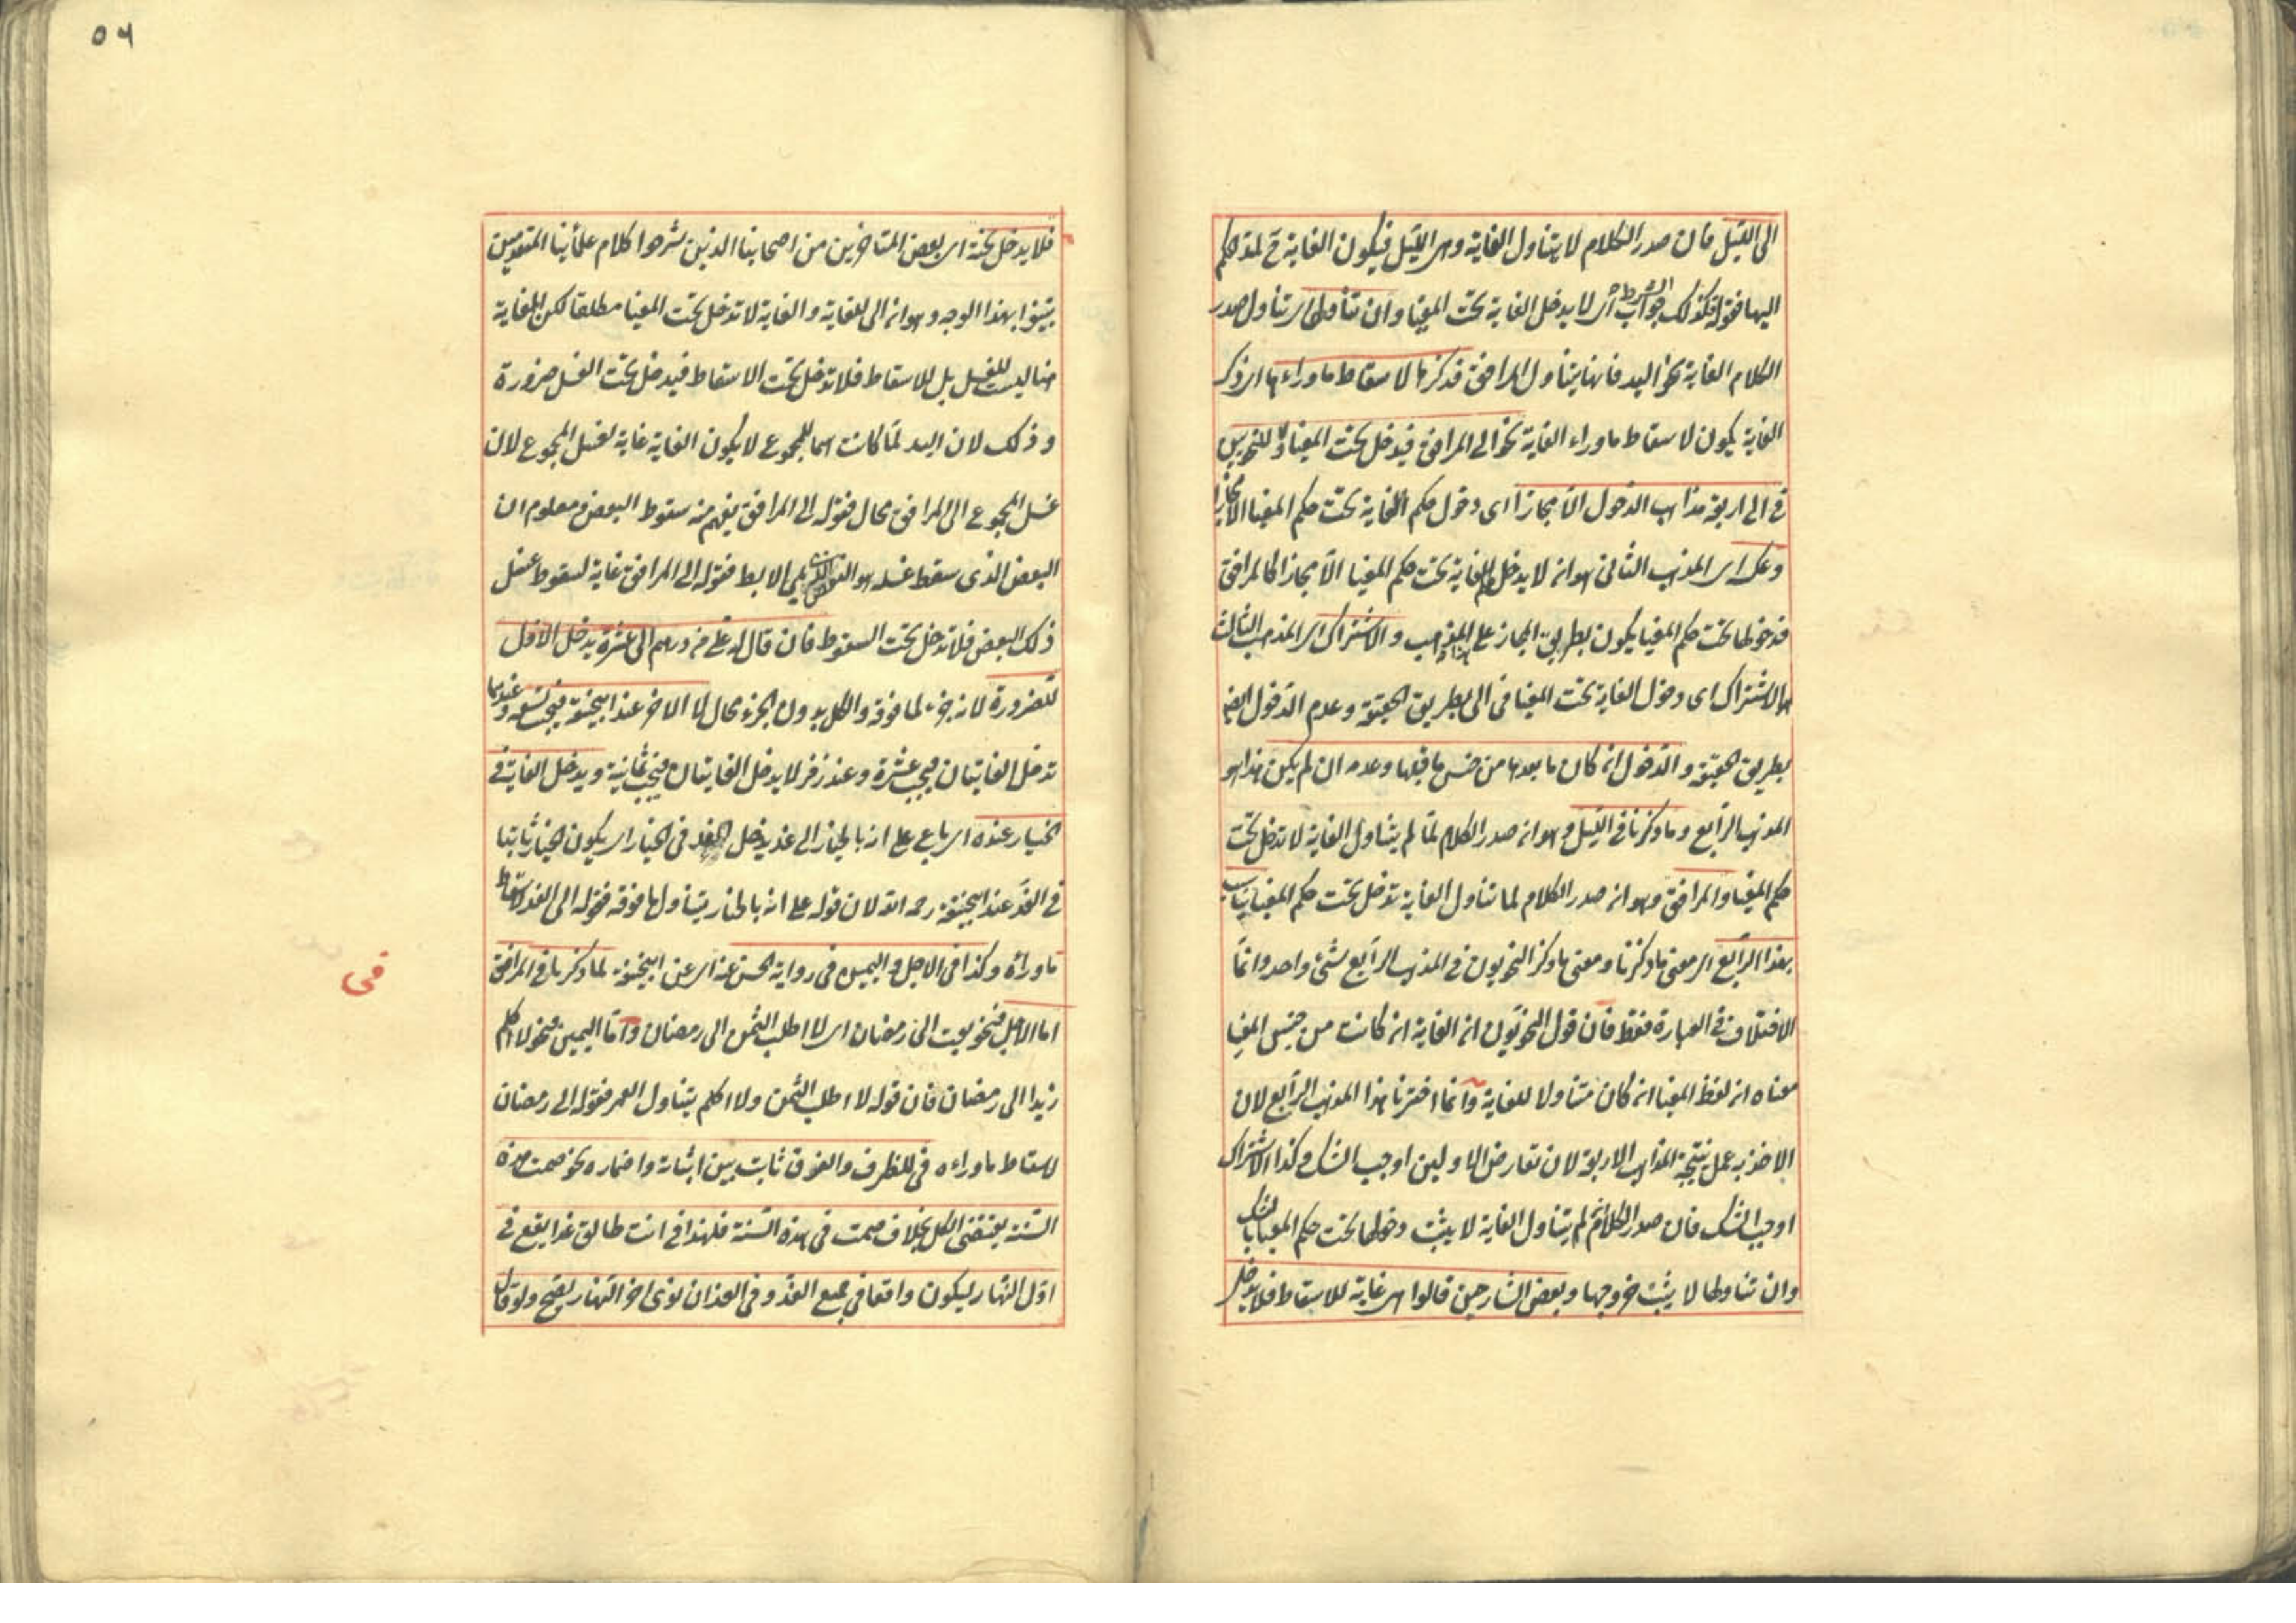 الى الليل فان صدر الكلام لا يتناول الغاية وهى الليل فيكون الغاية ح لمد حكم
اليها فقوله فكذلك جواب الشرط اى لا يدخل الغاية تحت المغيا وان تناولها اى تناول صدر
الكلام الغاية نحو اليد فانها يتناول المرافق فذكرها لاسقاط ما وراءها اى ذكر
الغاية يكون لاسقاط ما وراء الغاية نحو الى المرافق فيدخل تحت المغيا وللنحويين
فى الى اربعة مذاهب الدخول الا مجازا اى دخول حكم الغاية تحت حكم المغيا الا مجازا
وعكسه اى المذهب الثانى هو انه لا يدخل الغاية تحت حكم المغيا الا مجازا كالمرافق
فدخولها تحت حكم المغيا يكون بطريق المجاز على هذا المذهب والاشتراك اى المذهب الثالث
هو الاشتراك اى دخول الغاية تحت المغيا فى الى بطريق الحقيقة وعدم الدخول ايضا
بطريق الحقيقة والدخول ان كان ما بعدها من جنس ما قبلها وعدمه ان لم يكن هذا هو
المذهب الرابع وما ذكرنا فى الليل وهو ان صدر الكلام لما لم يتناول الغاية لا تدخل تحت
حكم المغيا والمرافق وهو ان صدر الكلام لما تناول الغاية تدخل تحت حكم المغيا يناسب
هذا الرابع اى معنى ما ذكرنا ومعنى ما ذكر النحويون فى المذهب الرابع شئ واحد وانما
الاختلاف فى العبارة فقط فان قول النحويون ان الغاية ان كانت من جنس المغيا
معناه ان لفظ المغيا ان كان متناولا للغاية وانما اخترنا هذا المذهب الرابع لان
الاخذ به عمل بنتيجة المذاهب الاربعة لان تعارض الاولين اوجب الشك وكذا الاشتراك
اوجب الشك فان صدر الكلام لم يتناول الغاية لا يثبت دخولها تحت حكم المغيا بالشك
وان تناولها لا يثبت خروجها وبعض الشارحين قالوا هى غاية للاسقاط فلا يدخل
٥٦
فلا يدخل تحته اى بعض المتاخرين من اصحابنا الذين شرحوا كلام علمائنا المتقدمين
بينوا بهذا الوجه وهو ان الى للغاية والغاية لا تدخل تحت المغيا مطلقا لكن الغاية
هنا ليست للغسل بل للاسقاط فلا تدخل تحت الاسقاط فيدخل تحت الغسل ضرورة
وذلك لان اليد لما كانت اسما للمجموع لا يكون الغاية غاية لغسل المجموع لان
غسل المجموع الى المرافق محال فقوله الى المرافق يفهم منه سقوط البعض ومعلوم ان
البعض الذى سقط غسله هو البعض الذى يلى الابط فقوله الى المرافق غاية لسقوط غسل
ذلك البعض فلا تدخل تحت السقوط فان قال له على من درهم الى عشرة يدخل الاول
للضرورة لانه جزء لما فوقه والكل بدون الجزء محال لا الاخر عند ابيحنيفة فيجب تسعة وعندهما
تدخل الغايتان فيجب عشرة وعند زفر لا يدخل الغايتان فيجب ثمانية ويدخل الغاية فى
الخيار عنده اى باع على انه بالخيار الى غد يدخل الغد فى الخيار اى يكون الخيار ثابتا
فى الغد عند ابيحنيفة رحمه الله لان قوله على انه بالخيار يتناول ما فوقه فقوله الى الغد لاسقاط
ما وراءه وكذا فى الاجل واليمين فى رواية الحسن عنه اى عن ابيحنيفة لما ذكرنا فى المرافق
اما الاجل فنحو بعت الى رمضان اى لا اطلب الثمن الى رمضان واما اليمين فنحو لا اكلم
زيدا الى رمضان فان قوله لا اطلب الثمن ولا اكلم يتناول العمر فقوله الى رمضان
لاسقاط ما وراءه فى للظرف والفرق ثابت بين اثباته واضماره نحو صمت هذه
السنة يقتضى الكل بخلاف صمت فى هذه السنة فلهذا فى انت طالق غدا يقع فى
اول النهار ليكون واقعا فى جميع الغد وفى الغد ان نوى اخر النهار يصح ولو قال
فى